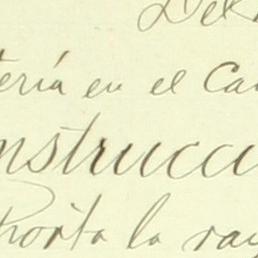 Del
tería en el Ca
nstrucci
porta la ray